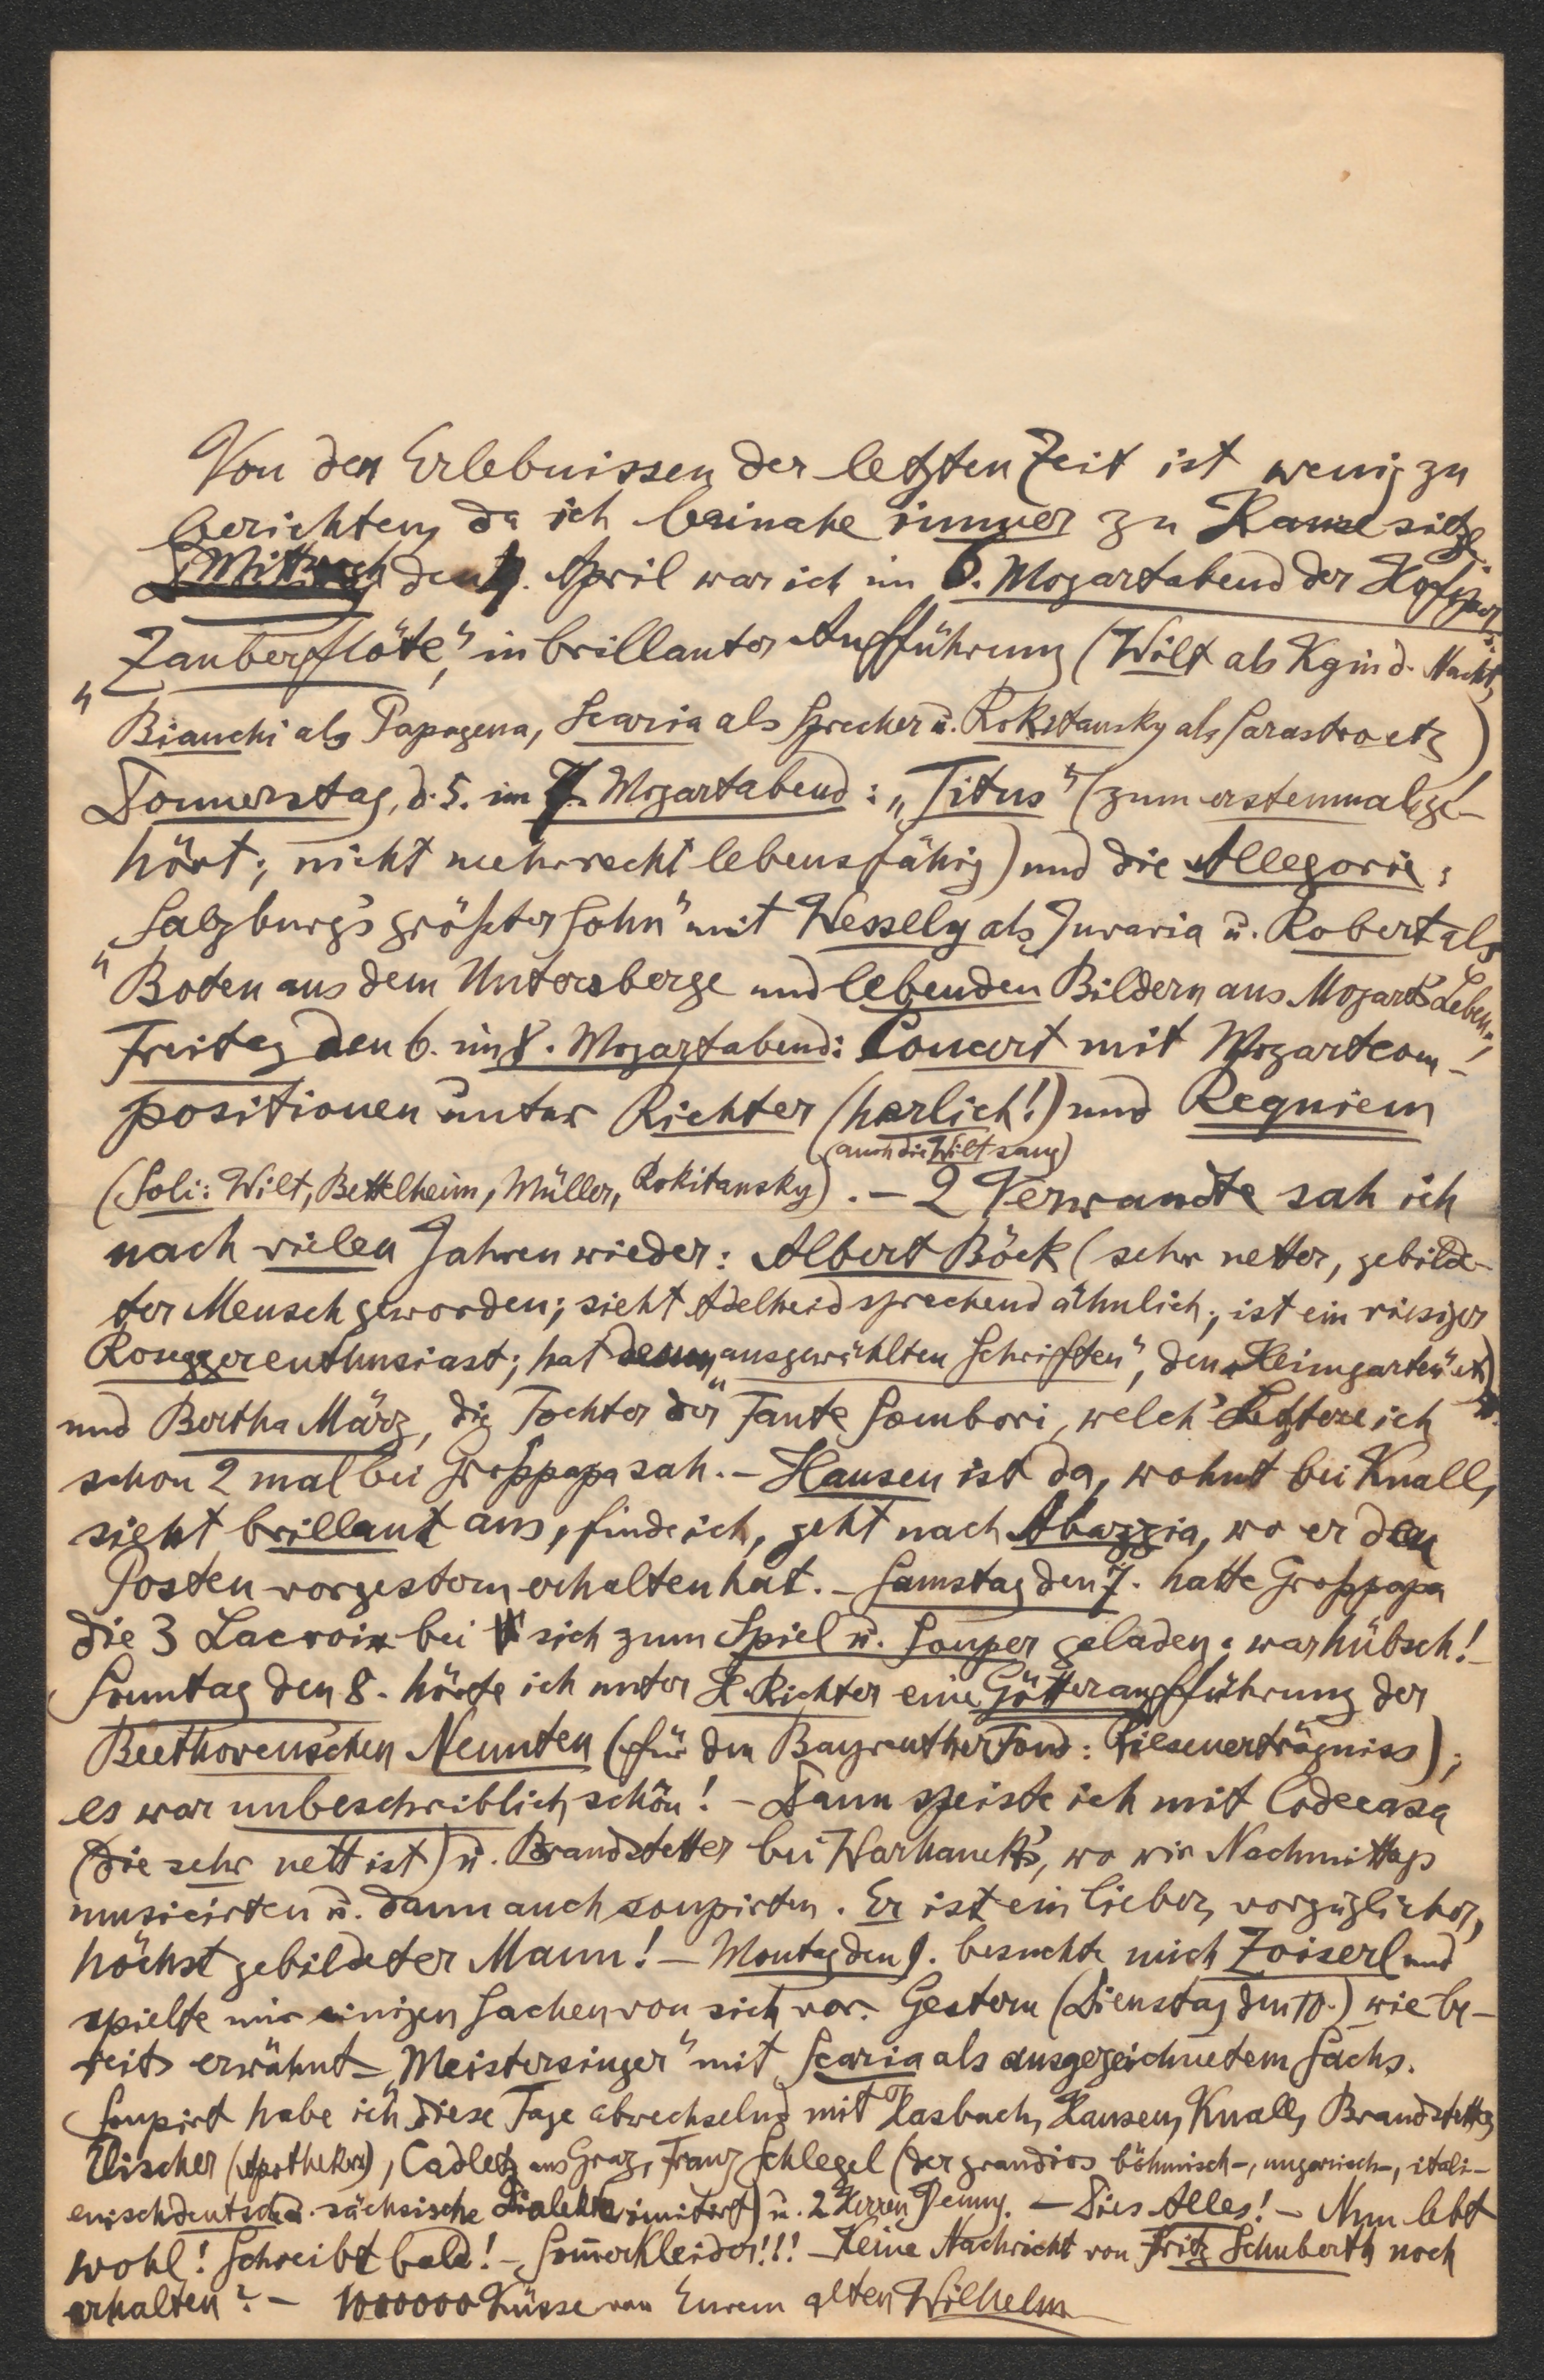 Von den Erlebnissen der letzten Zeit ist wenig zu
berichten, da ich beinahe immer zu Hause sitze.
Mittwoch den 4. April war ich im 6. Mozartabend der Hofoper:
„Zauberflöte“, in brillanter Aufführung (Wilt als Kgin d. Nacht,
Bianchi als Papagena, Scaria als Sprecher u. Rokitansky als Sarastro etz)
Donnerstag, d. 5. im 7. Mozartabend: „Titus“ (zum erstenmal ge-
hört; nicht mehr recht lebensfähig) und die Allegorie:
„Salzburg's größter Sohn“ mit Wessely als Juvaria u. Robert als
Boten aus dem Untersberge und lebenden Bildern aus Mozart's Leben;
Freitag den 6. im 8. Mozartabend: Concert mit Mozartcom-
positionen unter Richter (herlich!) und Requiem
(auch die Wilt sang)
(Soli: Wilt, Bettelheim, Müller, Rokitansky). – 2 Verwandte sah ich
nach vielen Jahren wieder: Albert Böck (sehr netter, gebilde-
ter Mensch geworden; sieht Adelheid sprechend ähnlich; ist ein riesiger
Roseggerenthusiast; hat „ausgewählten Schriften“, den „Heimgarten“ etz)
und Bertha März, die Tochter der Tante Sombori, welch' Letztere ich
schon 2 mal bei Grosspapa sah. – Hausen ist da, wohnt bei Knall,
sieht brillant aus, finde ich, geht nach Abazzia, wo er den
Posten vorgestern erhalten hat. – Samstag den 7. hatte Grosspapa
die 3 Lacroix bei sich zum Spiel u. Souper geladen: war hübsch! –
Sonntag den 8. hörte ich unter H. Richter eine Götteraufführung der
Beethoven'schen Neunten (für den Bayreuther Fond: Riesenerträgniss);
es war unbeschreiblich schön! – Dann speiste ich mit Codecasa
(die sehr nett ist) u. Brandstetter bei Warhanek's, wo wir Nachmittags
musicirten u. dann auch soupirten. Er ist ein lieber, vorzüglicher,
höchst gebildeter Mann! – Montag den 9. besuchte mich Zoiserl und
spielte mir einigen Sachen von sich vor. Gestern (Dienstag den 10.) wie be-
reits erwähnt – „Meistersinger“ mit Scaria als ausgezeichnetem Sachs.
Soupirt habe ich diese Tage abwechselnd mit Hasbach, Hausen, Knall, Brandstetter,
Tischer (Apotheker), Cadletz aus Graz, Franz Schlegel (der grandios böhmisch-, ungarisch-, itali-
enischdeutsch u. sächsische Dialekte imitirt) u. 2 Herren Penny. – Dies Alles! – Nun lebt
wohl! Schreibt bald! – Som̄erkleider!!! – Keine Nachricht von Fritz Schuberth noch
erhalten? – 1000000 Küsse von Eurem alten Wilhelm